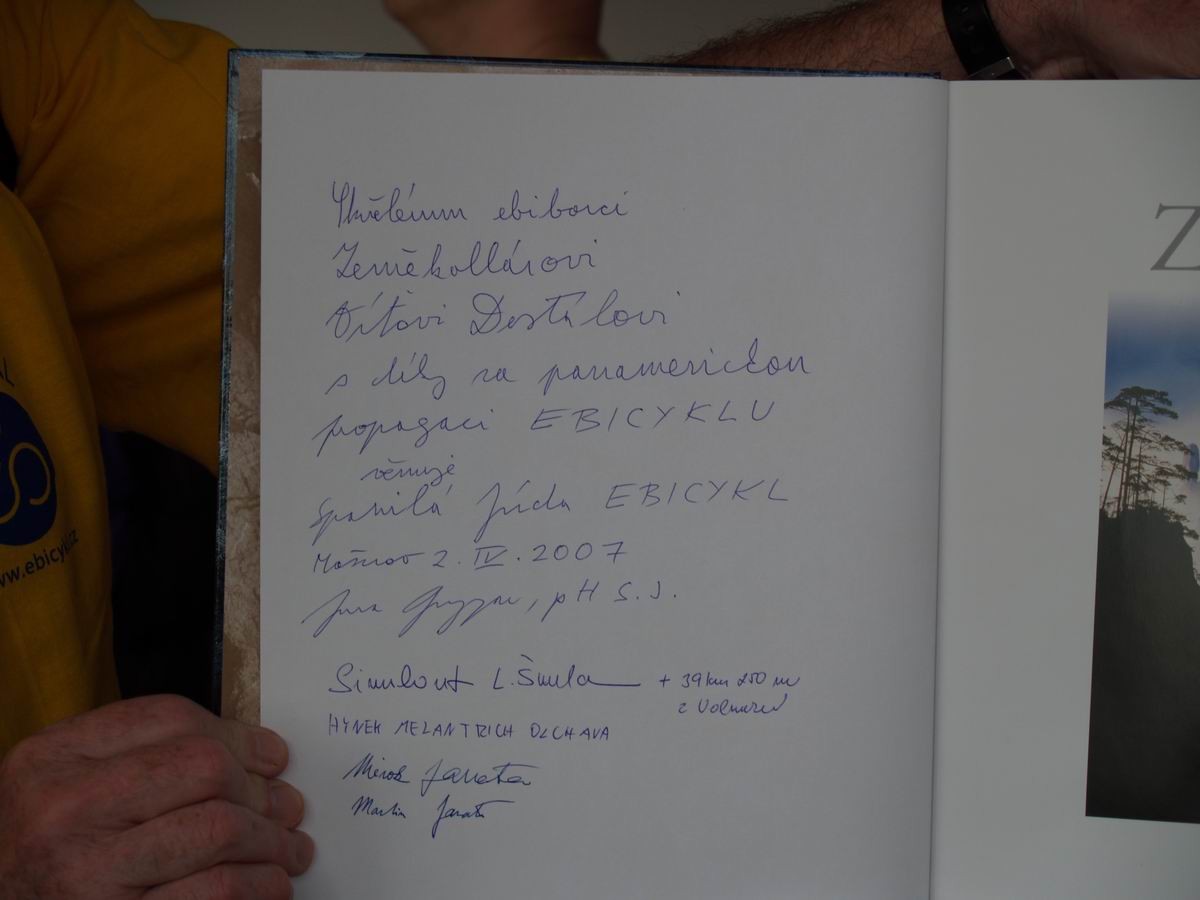 Skvělému ebiborci
Zeměkollárovi
Víťovi Dostálovi
s díky za panamerickou
propagaci EBICYKLU
věnuje
Spanilá jízda EBICYKL
Mošnov 2. IV. 2007
Jura Grygar, pH S.J.
Simulout L. Šmula + 39 km 250 m
z
HYNEK MELANTRICH OLCHAVA
Mirek Janata
Martin Janata
Z
www.ebicykl.cz